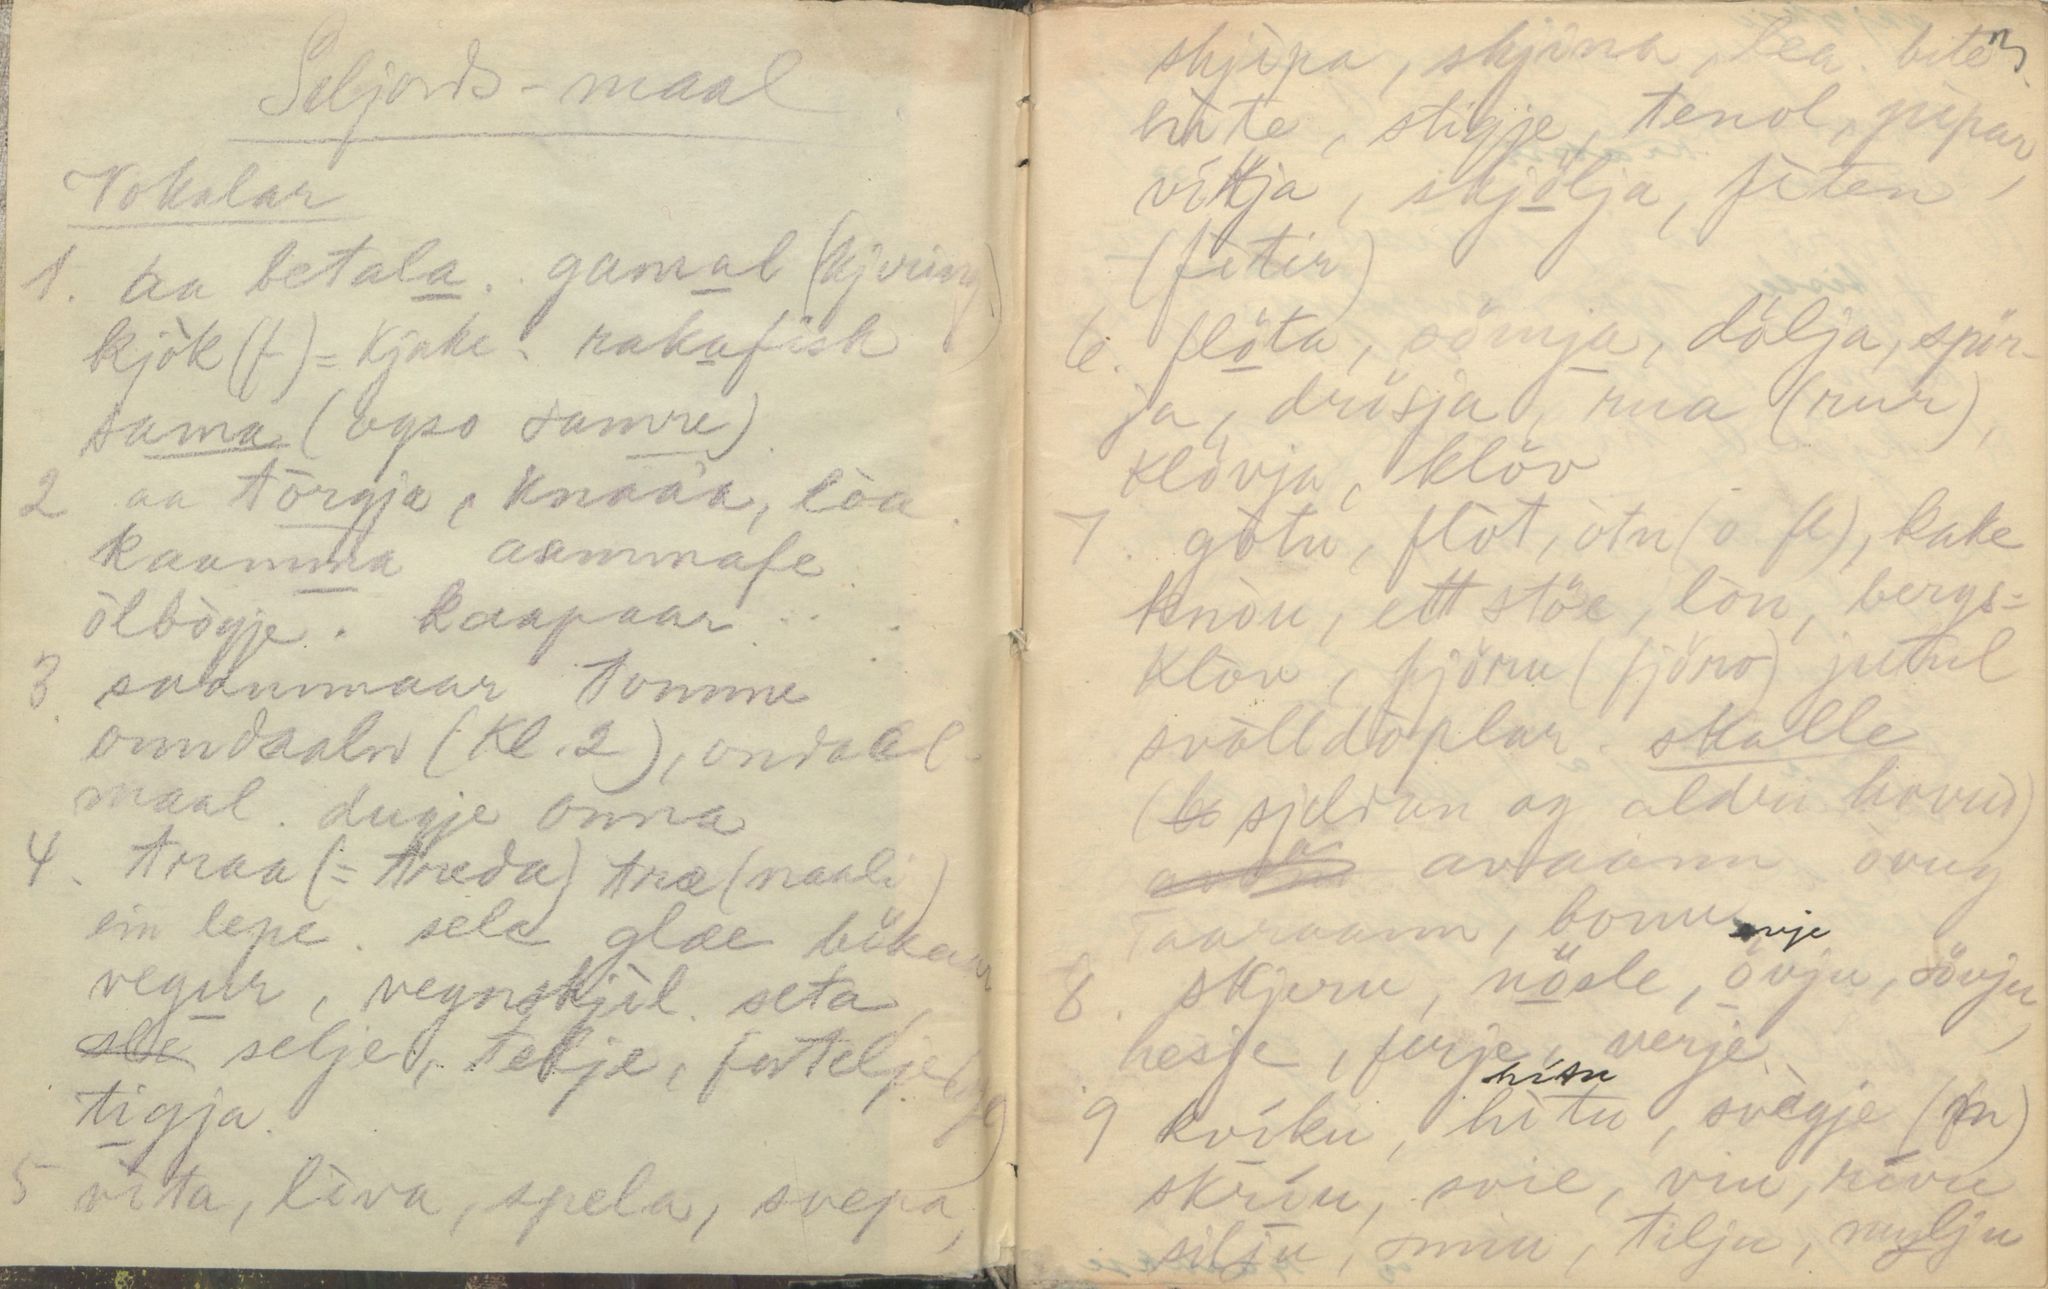 Seljords-maal
Vokalar
1. aa betala. gamal (kjvinng)
kjòk (f) = kjake. rakafisk
sama (ogso samre)
2 aa tòrgja, knaäa, lòa.
kaamma aammafe
òlbògje. kaapaar
3 svonnmaar tomme
onndaaln (kl. 2), ondaal-
maal. dugje onna
4. traa (= træda) træ (naali)
ein lepe. sele glæe
vegur, vegnskjìl. seta,
selje, telje, fortelje
tigja.
5 vìta, lìva, spela, svepa,
skjìpa, skjìna, lea. bite
hìte, stigje, tenol, pìpar,
vikja, skjölja, fìten,
(fìtir)
6. flöta, sömja, dölja, spör-
ja, drösja, rua (rur),
klövja, klöv
7. gòtu, flòt, òtu (o fl), kake
knòu, ett stöe, lòn, bergs-
klòv, fjöru (fjöro) jutul
svòlldòplar. skalle
(sjeldan og aldri hovud)
avaann òvug
Taaraann, bonu
vje
8. skjeru, nösle, övju, sövju,
hesje, ferje, verje
hísu
9 kvíku, hìtu, svègje (n)
skríu, svie, viu, rívu
silju, smiu, tilju, mylju